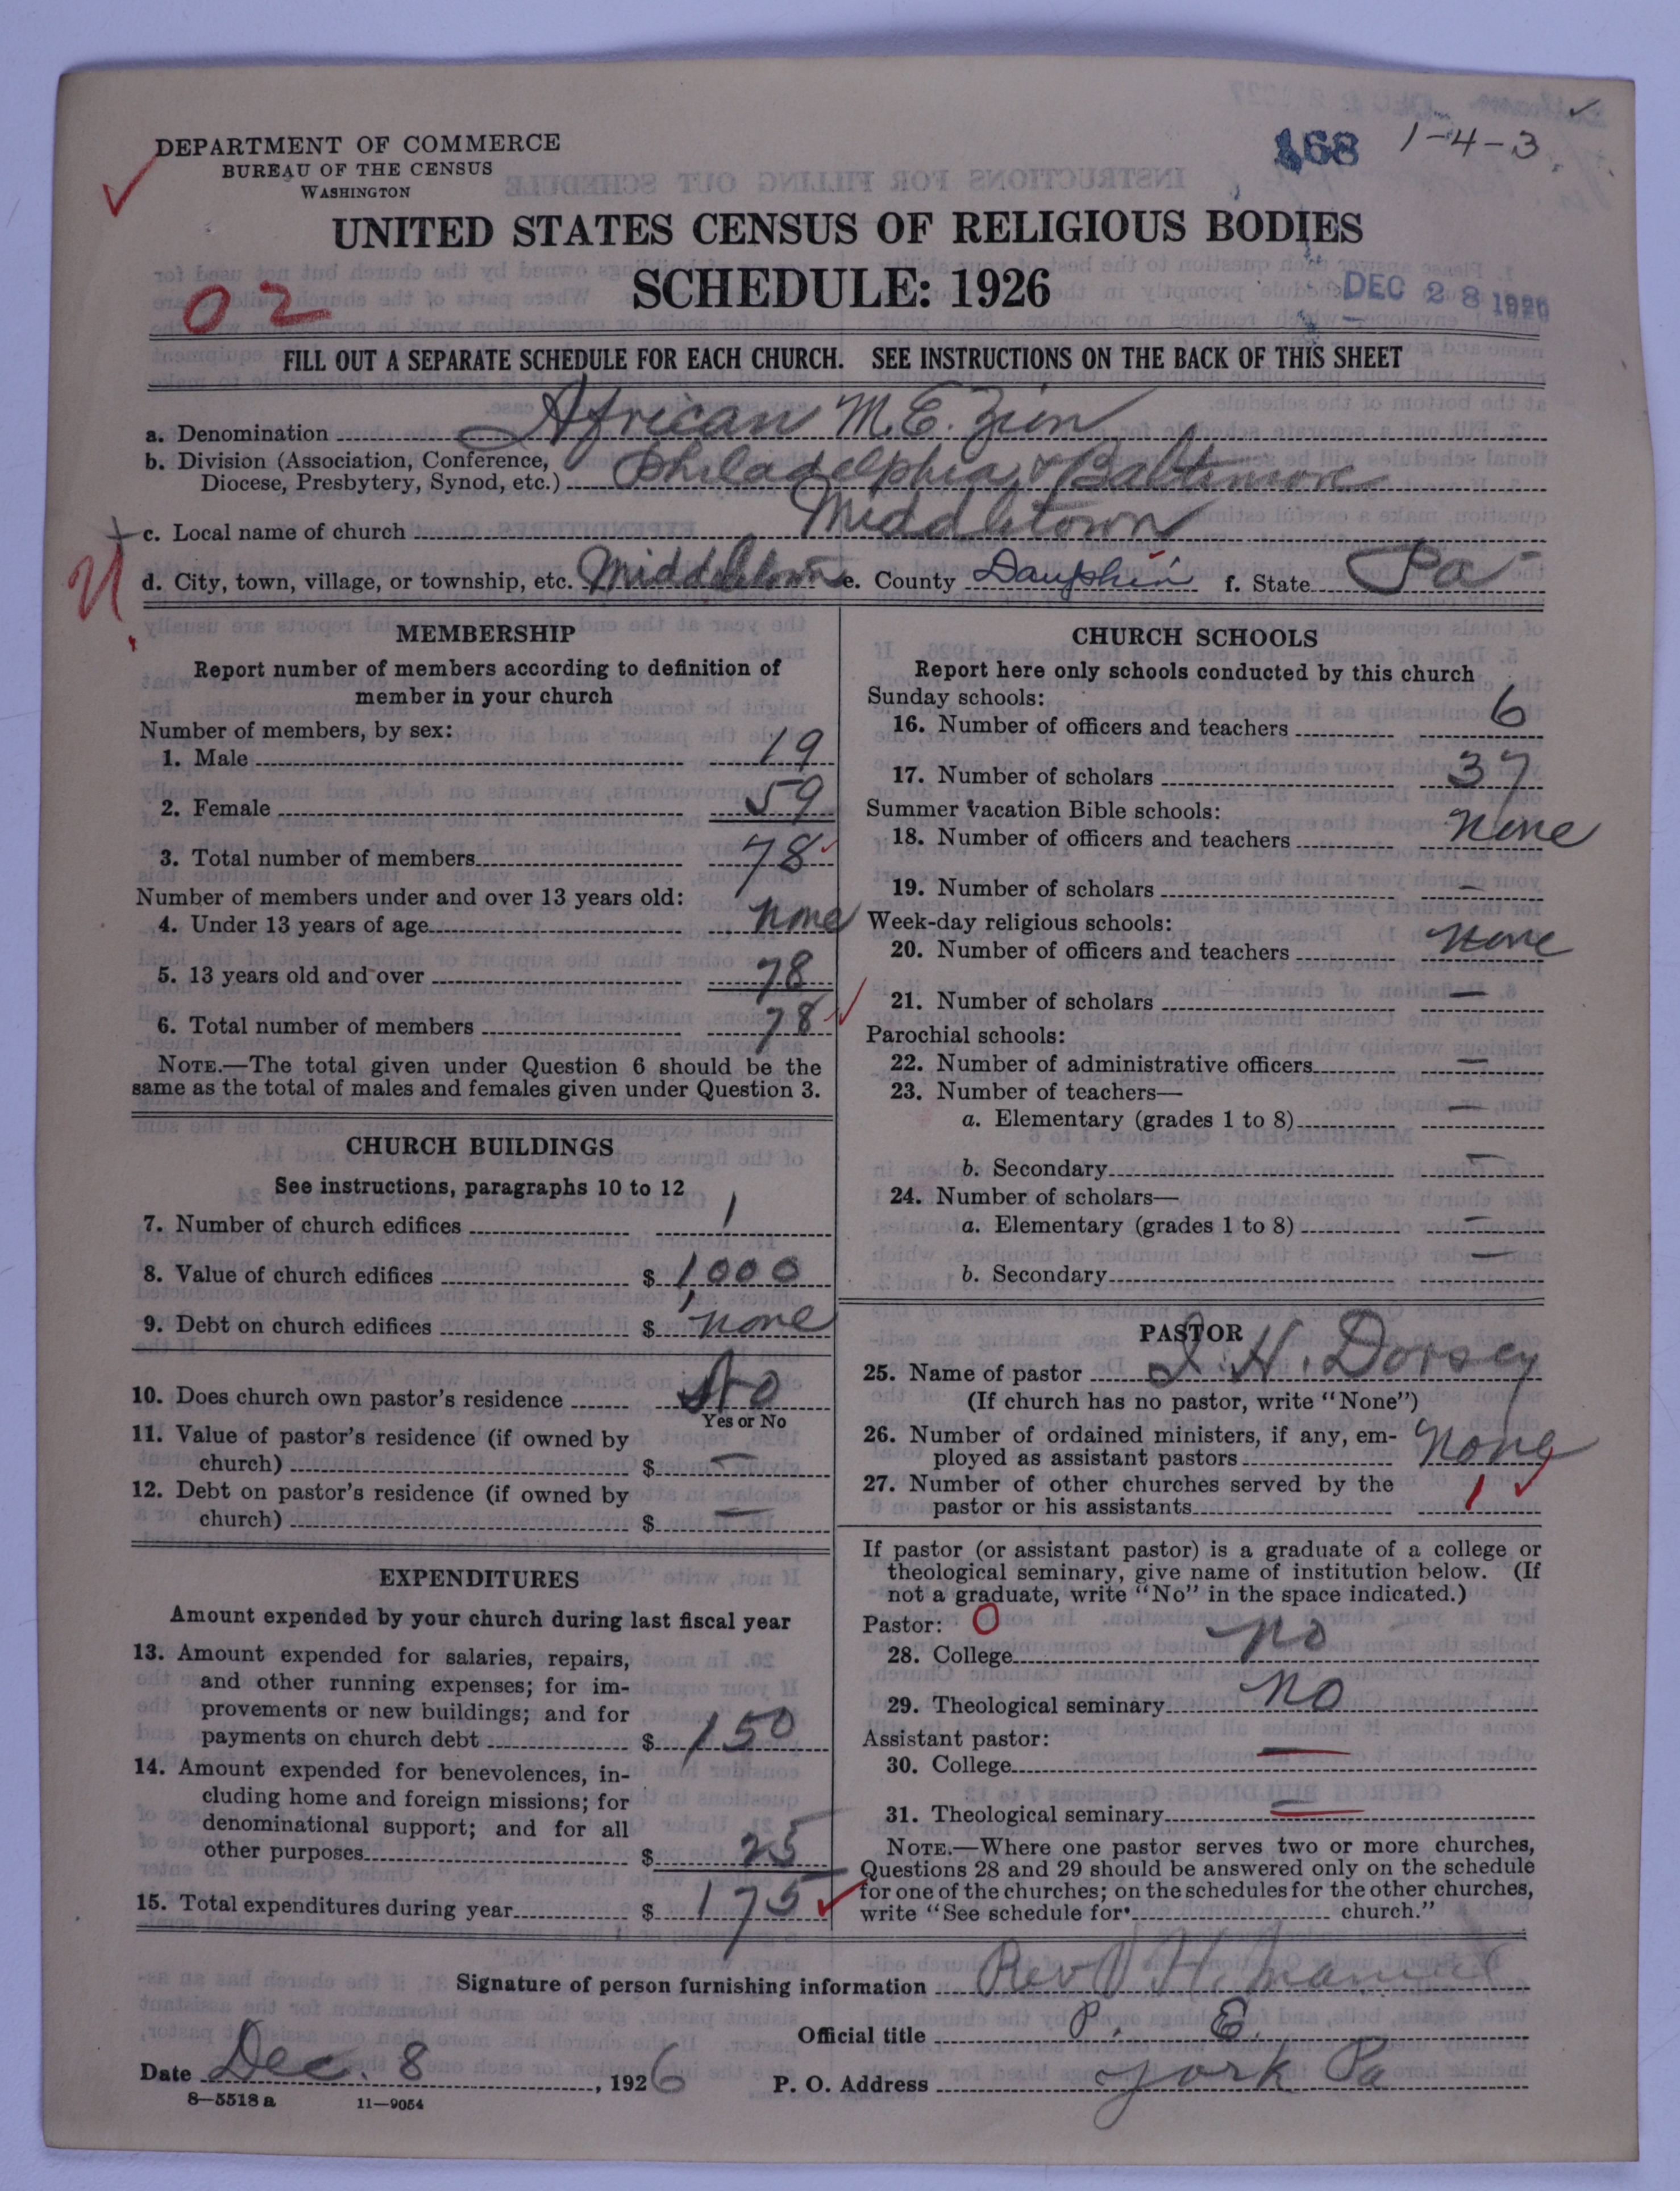 168 1-4-3
DEPARTMENT OF COMMERCE
BUREAU OF THE CENSUS
WASHINGTON
UNITED STATES CENSUS OF RELIGIOUS BODIES
SCHEDULE: 1926
DEC 28 1926
02
FILL OUT A SEPARATE SCHEDULE FOR EACH CHURCH. SEE INSTRUCTIONS ON THE BACK OF THIS SHEET
a. Denomination African M.E. Zion
b. Division (Association, Conference,
Diocese, Presbytery, Synod, etc.) Philadelphia & Baltimore
c. Local name of church Middletown
d. City, town, village, or township, etc. Middletown e. County Dauphin f. State Pa
MEMBERSHIP
Report number of members according to definition of
member in your church
Number of members, by sex:
1. Male 19
2. Female 59
3. Total number of members 78
Number of members under and over 13 years old:
4. Under 13 years of age none
5. 13 years old and over 78
6. Total number of members 78
NOTE.—The total given under Question 6 should be the
same as the total of males and females given under Question 3.
CHURCH BUILDINGS
See instructions, paragraphs 10 to 12
7. Number of church edifices 1
8. Value of church edifices $ 1,000
9. Debt on church edifices $ none
10. Does church own pastor's residence No
Yes or No
11. Value of pastor's residence (if owned by
church) $ —
12. Debt on pastor's residence (if owned by
church) $ —
EXPENDITURES
Amount expended by your church during last fiscal year
13. Amount expended for salaries, repairs,
and other running expenses; for im-
provements or new buildings; and for
payments on church debt $ 150
14. Amount expended for benevolences, in-
cluding home and foreign missions; for
denominational support; and for all
other purposes $ 25
15. Total expenditures during year $ 175
CHURCH SCHOOLS
Report here only schools conducted by this church
Sunday schools:
16. Number of officers and teachers 6
17. Number of scholars 37
Summer vacation Bible schools:
18. Number of officers and teachers none
19. Number of scholars —
Week-day religious schools:
20. Number of officers and teachers none
21. Number of scholars —
Parochial schools:
22. Number of administrative officers —
23. Number of teachers—
a. Elementary (grades 1 to 8) —
b. Secondary —
24. Number of scholars—
a. Elementary (grades 1 to 8) —
b. Secondary —
PASTOR
25. Name of pastor I. H. Dorsey
(If church has no pastor, write "None")
26. Number of ordained ministers, if any, em-
ployed as assistant pastors none
27. Number of other churches served by the
pastor or his assistants 1
If pastor (or assistant pastor) is a graduate of a college or
theological seminary, give name of institution below. (If
not a graduate, write "No" in the space indicated.)
Pastor: 0
28. College no
29. Theological seminary no
Assistant pastor:
30. College —
31. Theological seminary —
NOTE.—Where one pastor serves two or more churches,
Questions 28 and 29 should be answered only on the schedule
for one of the churches; on the schedules for the other churches,
write "See schedule for church."
Signature of person furnishing information Rev H.
Official title P. E.
Date Dec. 8, 1926 P. O. Address York Pa
8—5518 a 11—9054